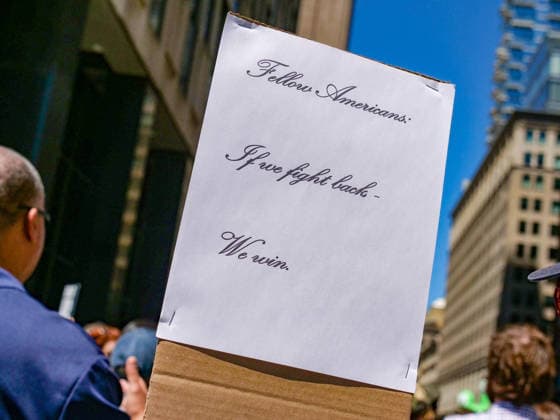 Fellow Americans:
If we fight back -
We win.